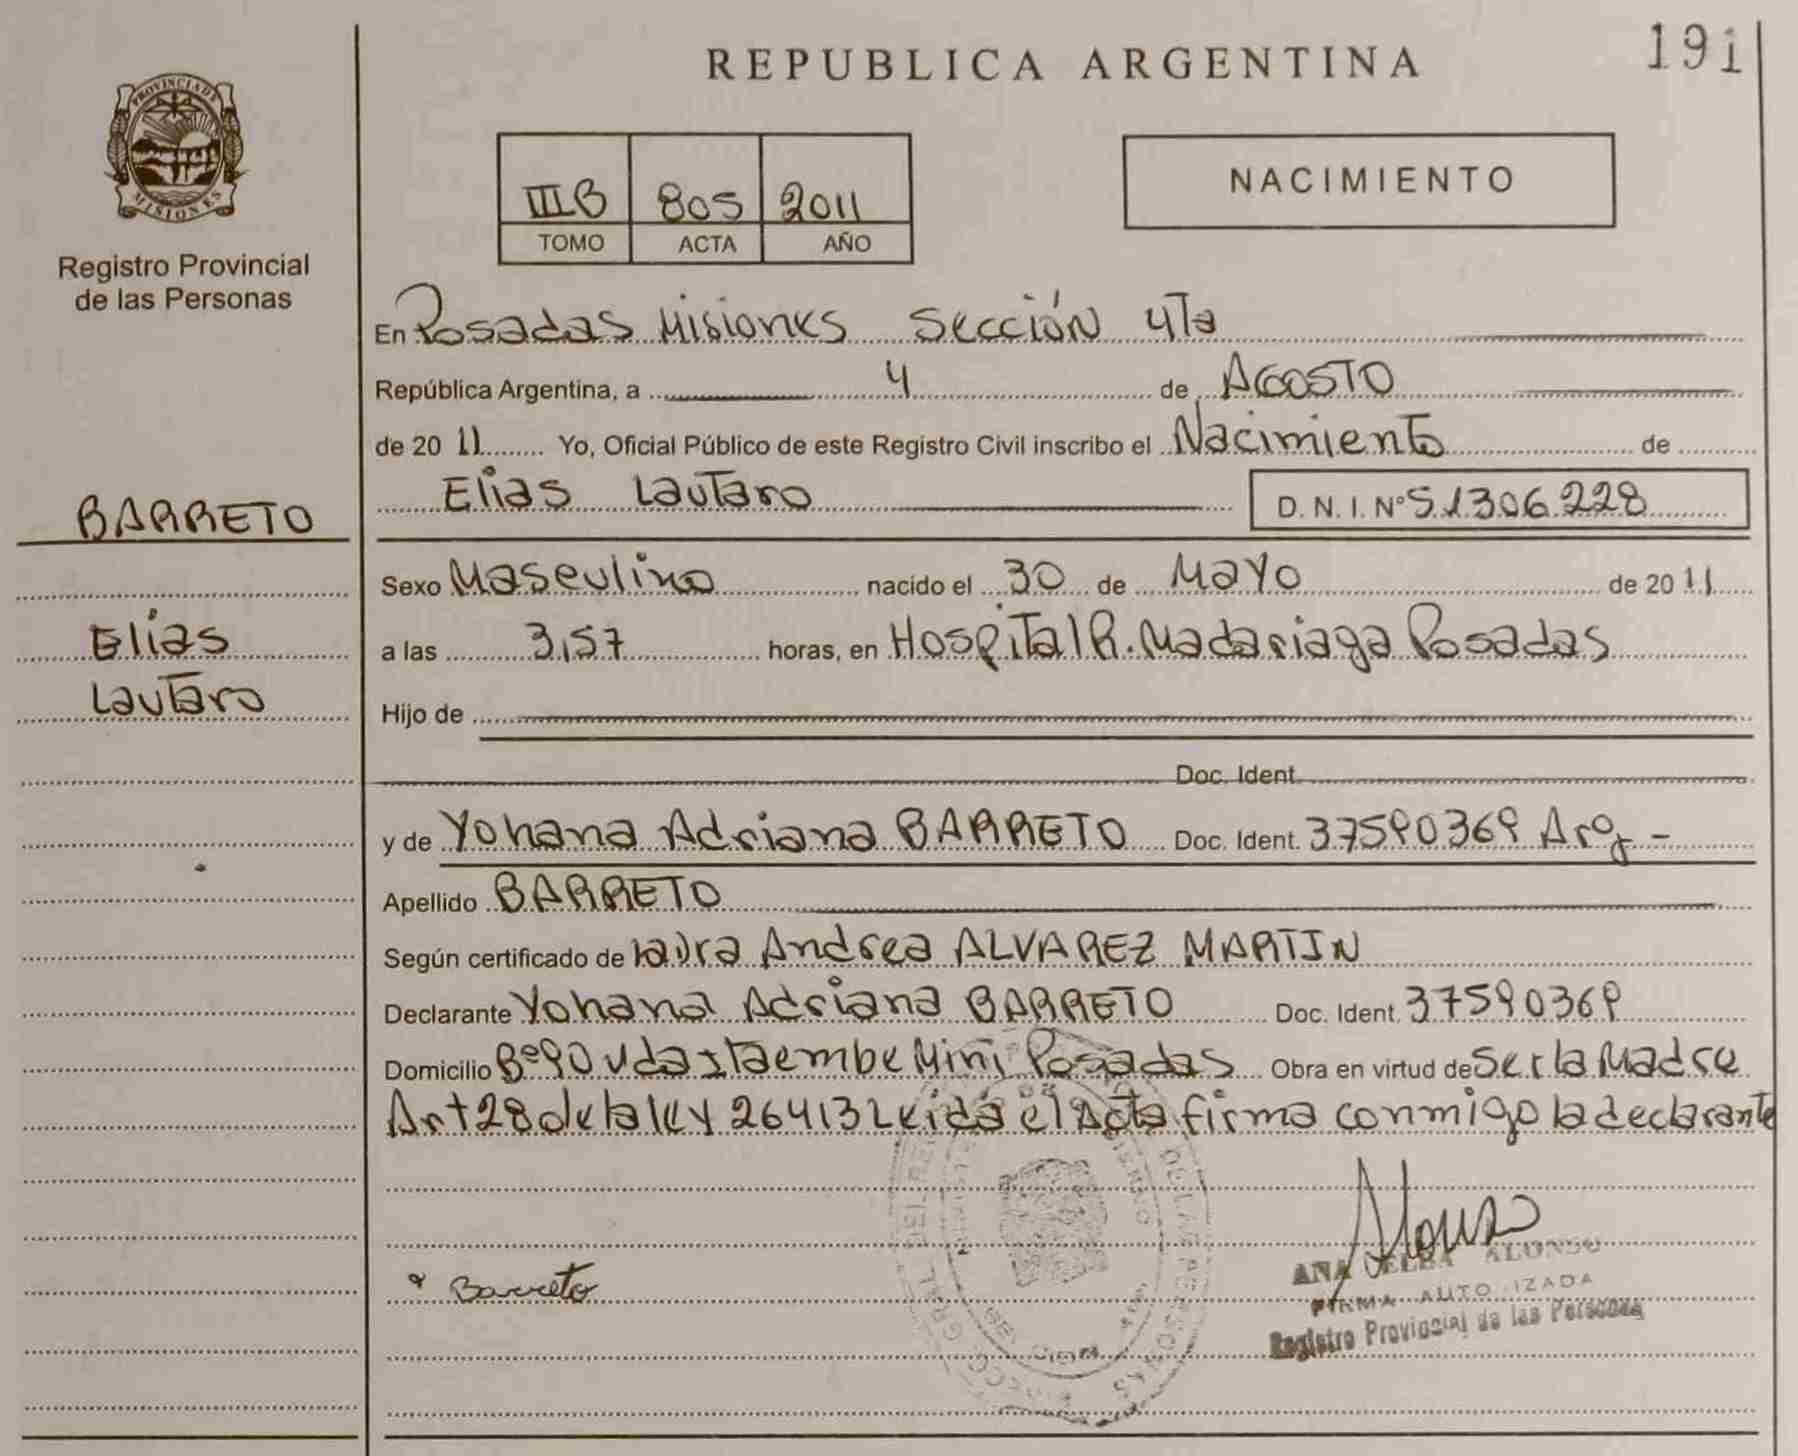 REPUBLICA ARGENTINA
191
PROVINCIA DE
MISIONES
Registro Provincial
de las Personas
III B 805 2011
TOMO ACTA AÑO
NACIMIENTO
En Posadas Misiones Sección 4Ta
República Argentina, a 4 de AGOSTO
de 20 11 Yo, Oficial Público de este Registro Civil inscribo el Nacimiento de
Elias Lautaro D. N. I. Nº 51306.228
BARRETO
Sexo Masculino nacido el 30 de MAYO de 20 11
Elias
a las 3,57 horas, en Hospital R. Madariaga Posadas
Lautaro
Hijo de
Doc. Ident.
y de Yohana Adriana BARRETO Doc. Ident. 37590369 Arg -
Apellido BARRETO
Según certificado de Laura Andrea ALVAREZ MARTIN
Declarante Yohana Adriana BARRETO Doc. Ident. 37590369
Domicilio Bº 90 Vdas Itaembe Mini Posadas Obra en virtud de Ser la Madre
Art 28 de la ley 26413 Leida el Acta firma conmigo la declarante
Barreto
Alonso
ANA ALONSO
FIRMA AUTO IZADA
Registro Provincial de las Personas